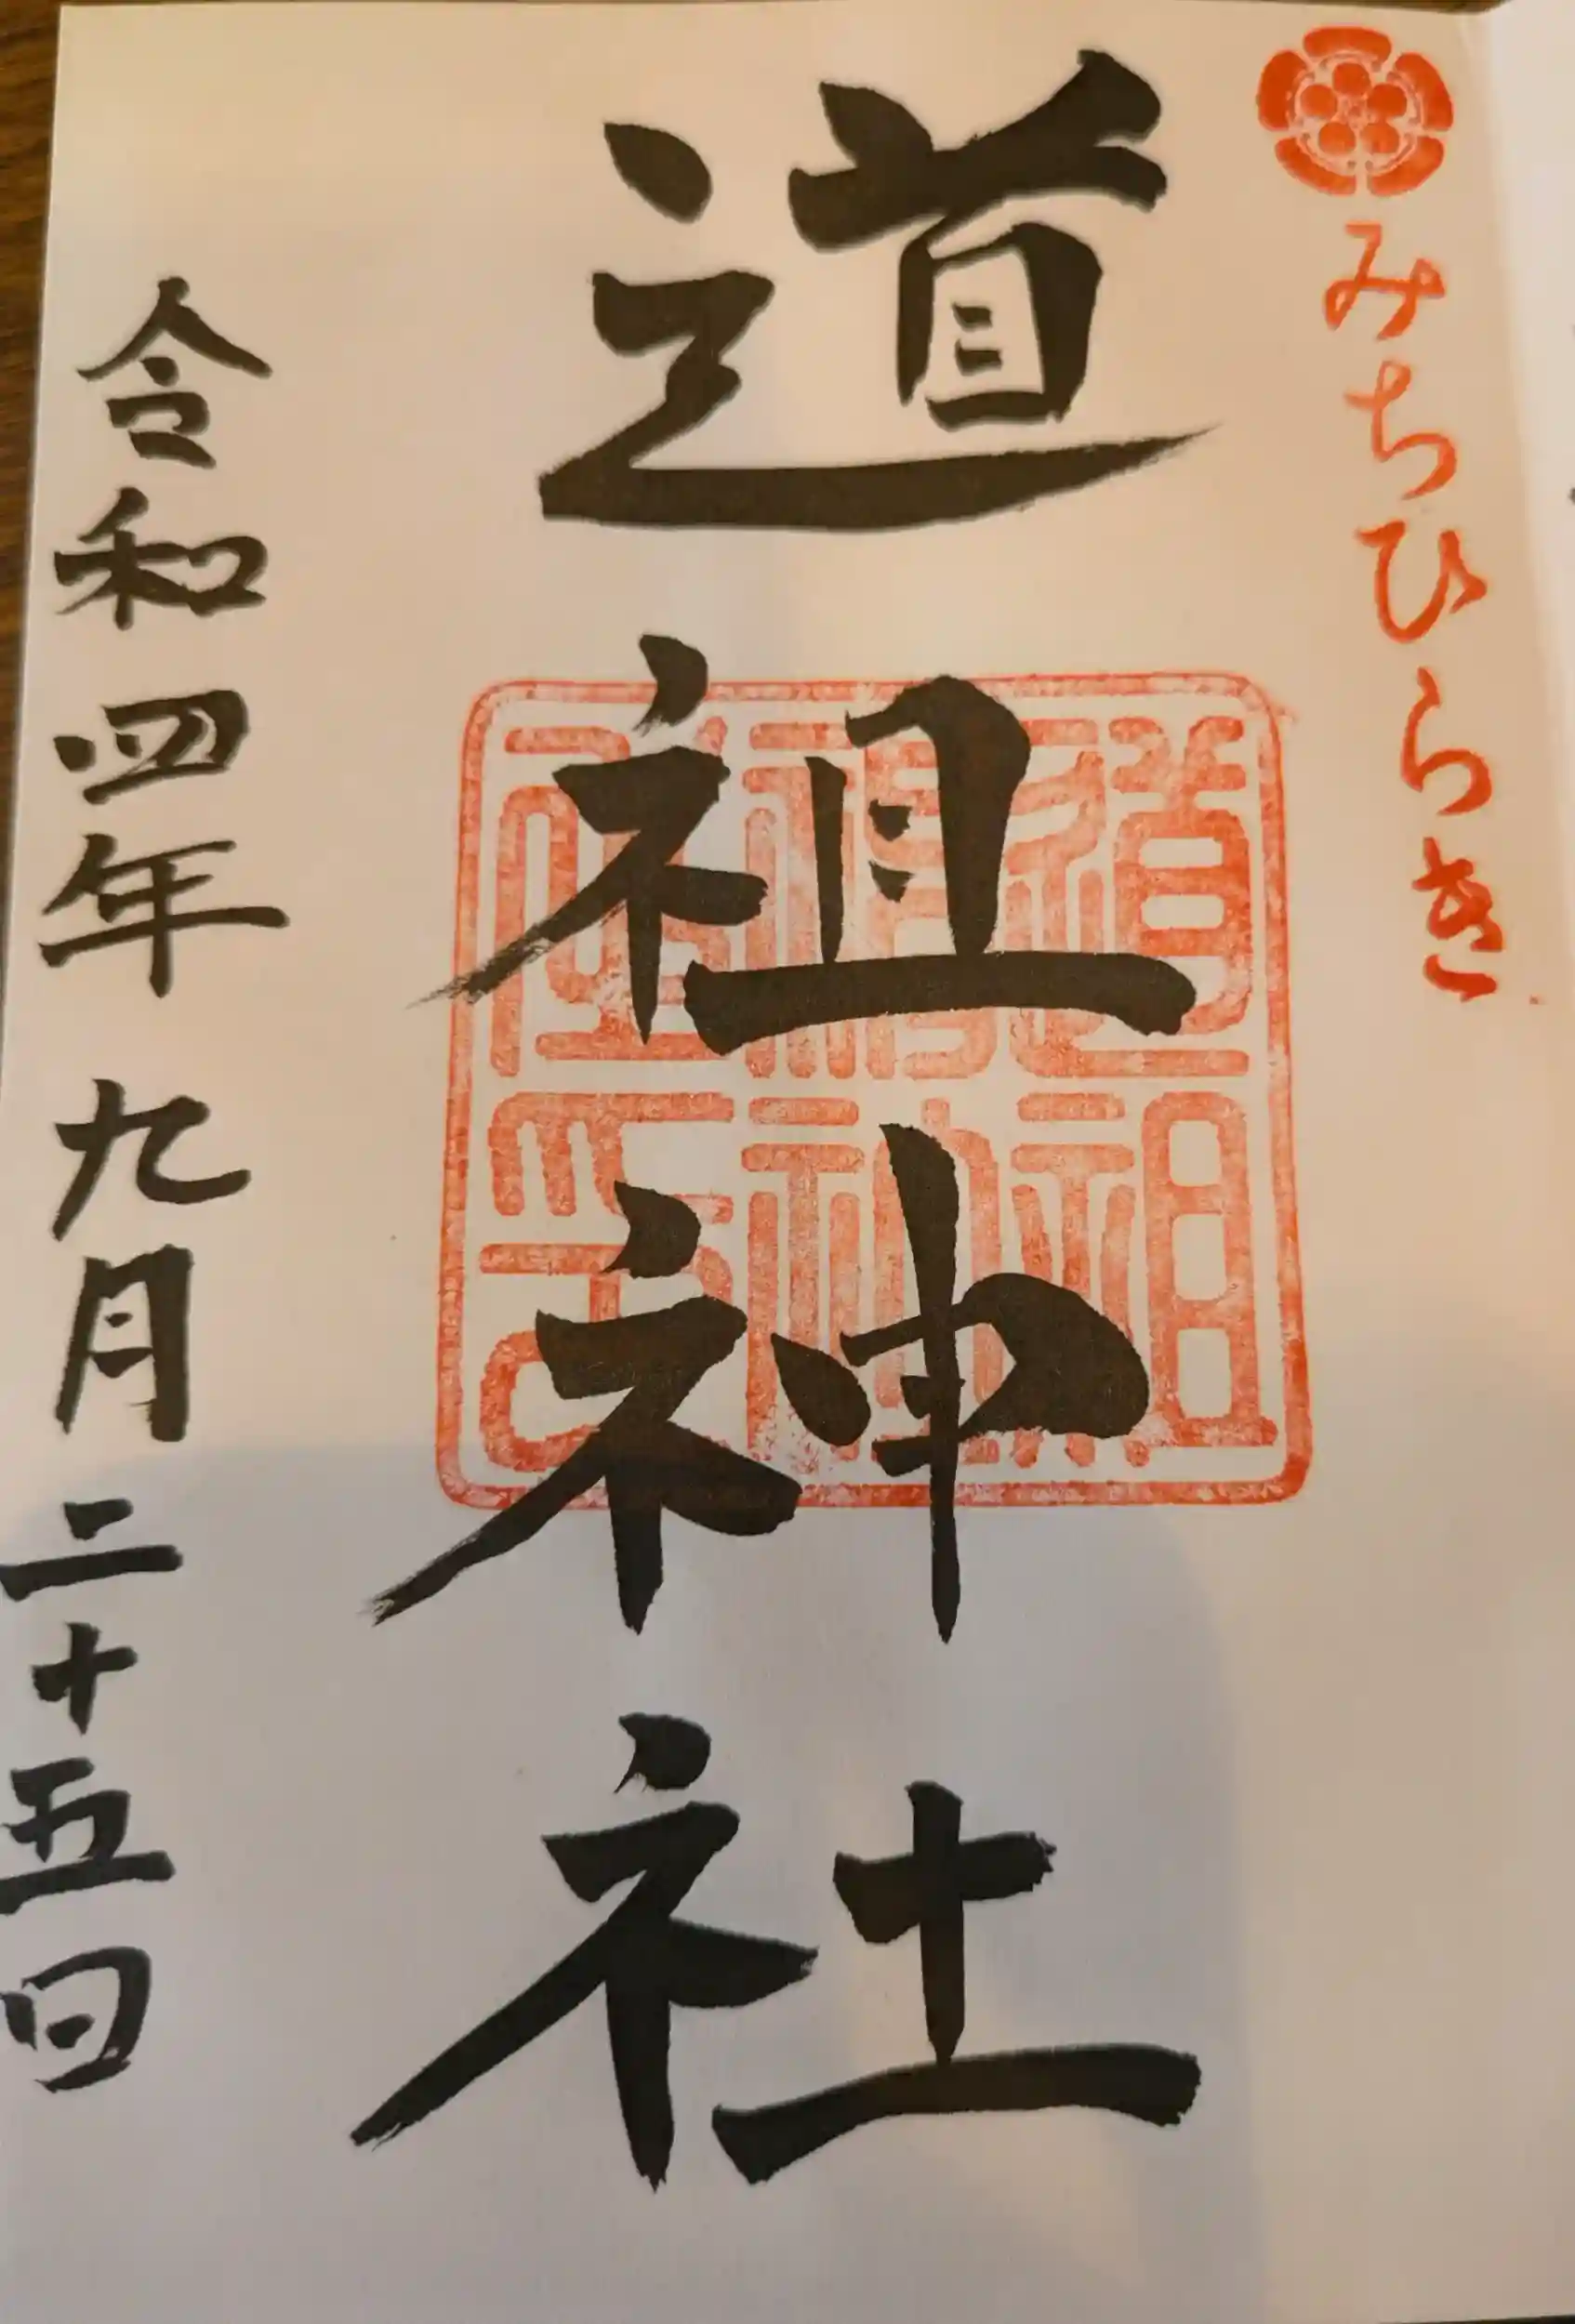 みちひらき
道祖神社
道祖
禎神
社印
令和四年九月二十五日